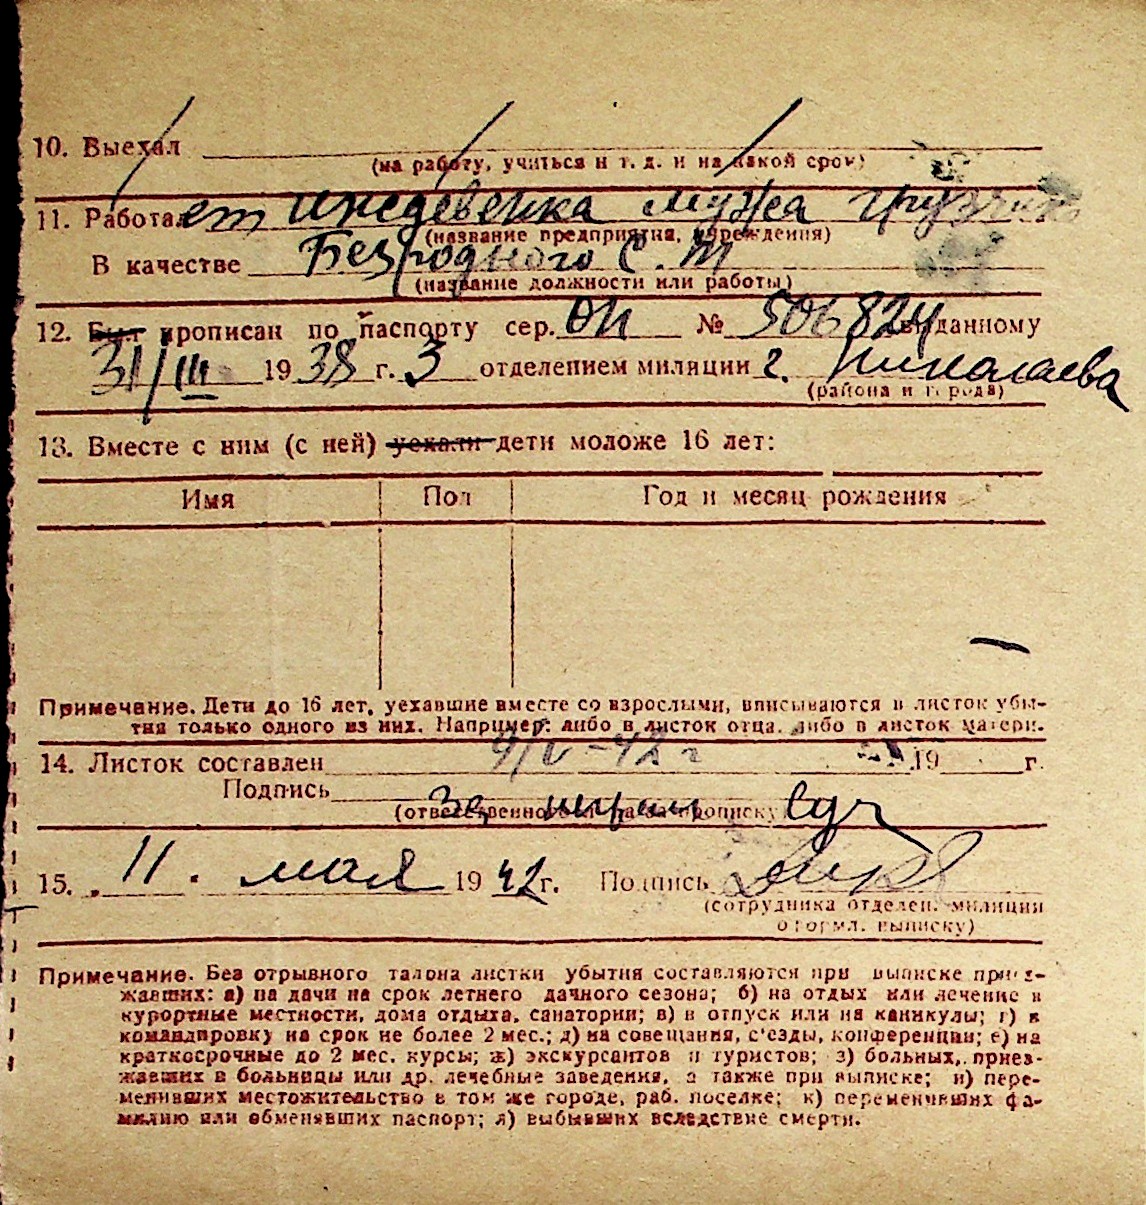 10. Выехал
(на работу, учиться и т. д. и на какой срок)
11. Работает иждевенка мужа грузчик
(название предприятия, учреждения)
В качестве Безродного С. М
(название должности или работы)
12. Был прописан по паспорту сер. ОП № 506824 выданному
31/III 1938 г. 3 отделением милиции г. Николаева
(района и города)
13. Вместе с ним (с ней) уехали дети моложе 16 лет:
Имя Пол Год и месяц рождения
Примечание. Дети до 16 лет, уехавшие вместе со взрослыми, вписываются в листок убы-
тия только одного из них. Например: либо в листок отца, либо в листок матери.
14. Листок составлен 9/V-42 г 19 г.
Подпись За
(ответственного за прописку)
15. 11. мая 1942 г. Подпись
(сотрудника отделен. милиции
оформл. выписку)
Примечание. Без отрывного талона листки убытия составляются при выписке приез-
жавших: а) на дачи на срок летнего дачного сезона; б) на отдых или лечение в
курортные местности, дома отдыха, санатории; в) в отпуск или на каникулы; г) в
командировку на срок не более 2 мес.; д) на совещания, с'езды, конференции; е) на
краткосрочные до 2 мес. курсы; ж) экскурсантов и туристов; з) больных, приез-
жавших в больницы или др. лечебные заведения, а также при выписке; и) пере-
менивших местожительство в том же городе, раб. поселке; к) переменивших фа-
милию или обменявших паспорт; л) выбывших вследствие смерти.